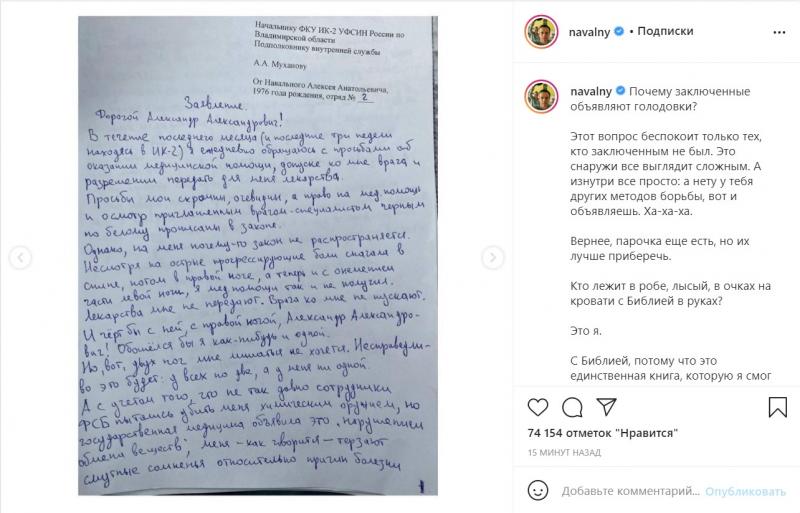 Начальнику ФКУ ИК-2 УФСИН России по
Владимирской области
Подполковнику внутренней службы
А.А. Муханову
От Навального Алексея Анатольевича,
1976 года рождения, отряд № 2
Заявление.
Дорогой Александр Александрович!
В течение последнего месяца (и последние три недели
находясь в ИК-2) я ежедневно обращаюсь с просьбами об
оказании медицинской помощи, допуске ко мне врача и
разрешении передать для меня лекарства.
Просьбы мои скромны, очевидны, а право на мед. помощь
и осмотр приглашенным врачом-специалистом черным
по белому прописаны в законе.
Однако, на меня почему-то закон не распространяется.
Несмотря на острые прогрессирующие боли сначала в
спине, потом в правой ноге, а теперь и с онемением
части левой ноги, я мед помощи так и не получил.
Лекарства мне не передают. Врача ко мне не пускают.
И чёрт бы с ней, с правой ногой, Александр Александро-
вич! Обошёлся бы я как-нибудь и одной.
Но, вот, двух ног мне лишаться не хочется. Несправедли-
во это будет: у всех по две, а у меня ни одной.
А с учетом того, что не так давно сотрудники
ФСБ пытались убить меня химическим оружием, но
государственная медицина объявила это "нарушением
обмена веществ", меня - как говорится - терзают
смутные сомненья относительно причин болезни
1
navalny • Подписки
navalny Почему заключенные
объявляют голодовки?
Этот вопрос беспокоит только тех,
кто заключенным не был. Это
снаружи все выглядит сложным. А
изнутри все просто: а нету у тебя
других методов борьбы, вот и
объявляешь. Ха-ха-ха.
Вернее, парочка еще есть, но их
лучше приберечь.
Кто лежит в робе, лысый, в очках на
кровати с Библией в руках?
Это я.
С Библией, потому что это
единственная книга, которую я смог
74 154 отметок "Нравится"
15 МИНУТ НАЗАД
Добавьте комментарий... Опубликовать